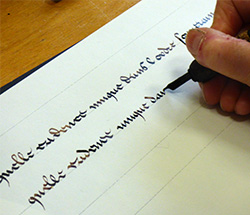 quelle cadence unique dans l'ordre
quelle cadence unique dan